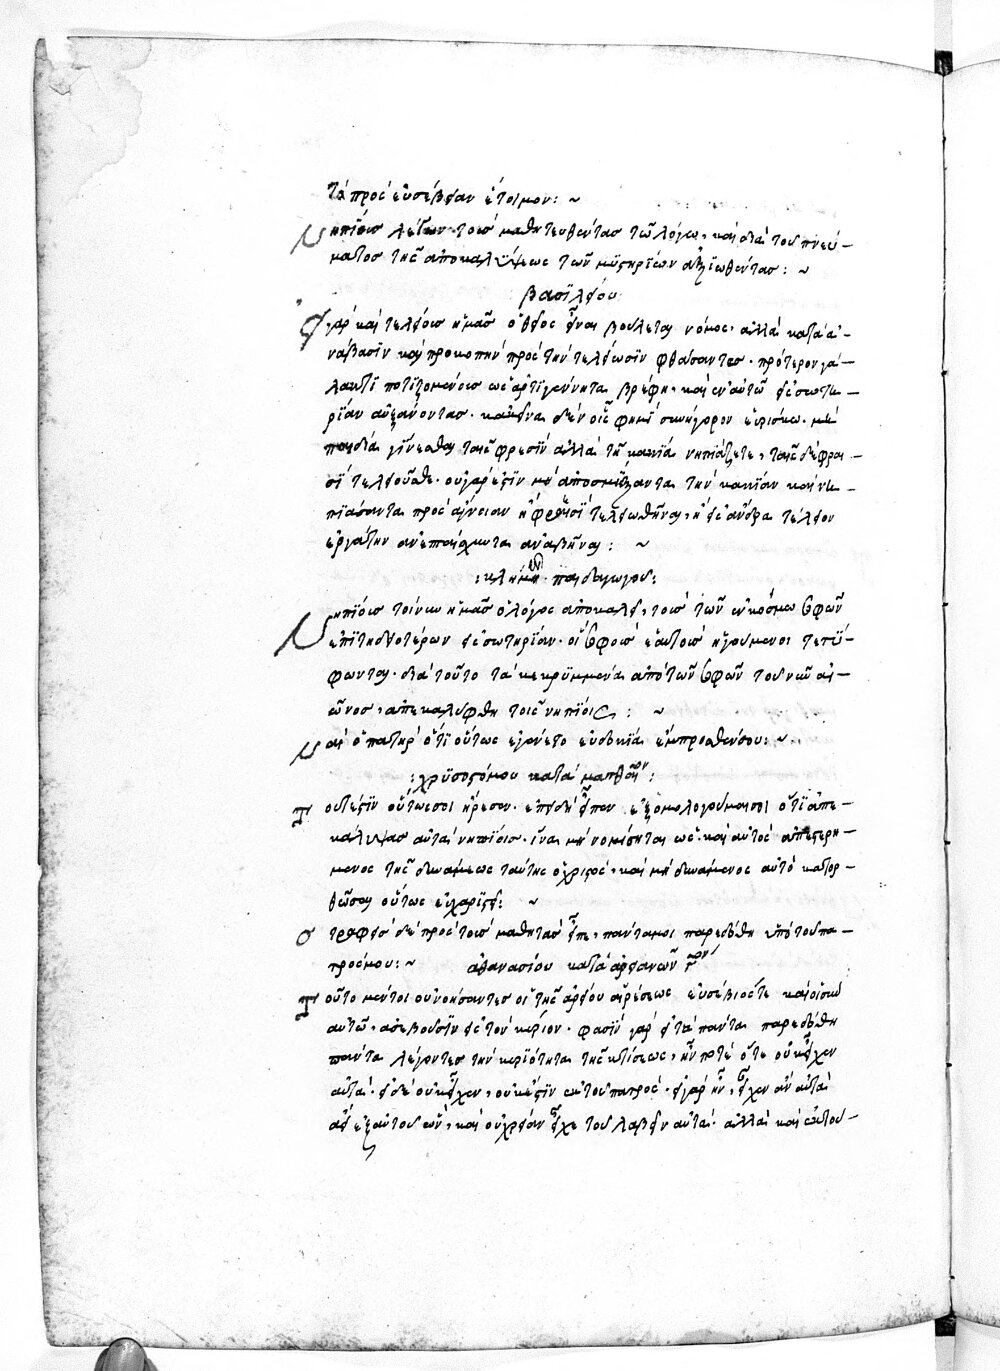 τὰ πρὸς εὐσέβειαν ἕτοιμον: ~
Νηπίοις λέγων τοὺς μαθητευθέντας τῶ λόγω, καὶ διὰ τοῦ πνεύ-
ματος τῆς ἀποκαλύψεως τῶν μυστηρίων ἀξιωθέντας: ~
βασιλείου
γὰρ καὶ τελείους ἡμᾶς ὁ θεὸς εἶναι βούλεται νόμος· ἀλλὰ κατὰ ἀ-
νάβασιν καὶ προκοπὴν πρὸς τὴν τελείωσιν φθάσαντες· πρότερον γά-
λακτι ποτιζομένους ὡς ἀρτιγέννητα βρέφη· καὶ ἐν αὐτῶ εἰς σωτη-
ρίαν αὐξάνοντας· φημὶ συνήγορον εὑρίσκω· μὴ
παιδία γίνεσθαι ταῖς φρεσὶν ἀλλὰ τῆ κακία νηπιάζετε, ταῖς δὲ φρε-
σὶ τέλειοι οὐ γάρ ἐστιν μὴ ἀποσμήξαντα τὴν κακίαν καὶ νη-
πιάσαντα πρὸς ἁγνείαν ἢ φρεσὶ τελειωθῆναι, ἢ εἰς ἄνδρα τέλειον
ἐργάτην ἀνεπαίσχυντα ἀναβῆναι: ~
:κλήμεν παιδαγωγοῦ:
Νηπίους τοίνυν ἡμᾶς ὁ λόγος ἀποκαλεῖ, τοὺς τῶν ἐν κόσμω σοφῶν
ἐπιτηδειοτέρων εἰς σωτηρίαν· οἳ σοφοὺς ἑαυτοὺς ἡγούμενοι τετύ-
φωνται· διὰ τοῦτο τὰ κεκρυμμένα ἀπὸ τῶν σοφῶν τοῦ νῦν αἰ-
ῶνος, ἀπεκαλύφθη τοῖς νηπίοις: ~
Ναὶ ὁ πατὴρ ὅτι οὕτως ἐγένετο εὐδοκία ἔμπροσθέν σου: ~
:χρυσοστόμου κατὰ ματθαῖον:
Τουτέστιν οὕτως σοι ἤρεσεν· ἐπειδὴ εἶπεν ἐξομολογοῦμαί σοι ὅτι ἀπε-
κάλυψας αὐτὰ νηπίοις· ἵνα μὴ νομίσηται ὡς καὶ αὐτὸς ἀπεστερη-
μένος τῆς δυνάμεως ταύτης ὁ χριστὸς, καὶ μὴ δυνάμενος αὐτὸ κατορ-
θῶσαι οὕτως εὐχαριστεῖ: ~
στραφεὶς δὲ πρὸς τοὺς μαθητὰς εἶπε, πάντα μοι παρεδόθη ὑπὸ τοῦ πα-
τρός μου: ~ ἀθανασίου κατὰ ἀρειανῶν
Τοῦτο μέντοι οὐ νοήσαντες οἱ τῆς ἀρείου αἱρέσεως εὐσέβιός τε καὶ οἱ σὺν
αὐτῶ, ἀσεβοῦσιν εἰς τὸν κύριον· φασὶν γὰρ εἰ τὰ πάντα παρεδόθη
πάντα λέγοντες τὴν κυριότητα τῆς κτίσεως, ἦν ποτὲ ὅτε οὐκ εἶχεν
αὐτά· εἰ δὲ οὐκ εἶχεν, οὐκ ἔστιν ἐκ τοῦ πατρός· εἰ γὰρ ἦν, εἶχεν ἂν αὐτὰ
ἀεὶ ἐξ αὐτοῦ ὢν, καὶ οὐ χρείαν εἶχε τοῦ λαβεῖν αὐτά· ἀλλὰ καὶ